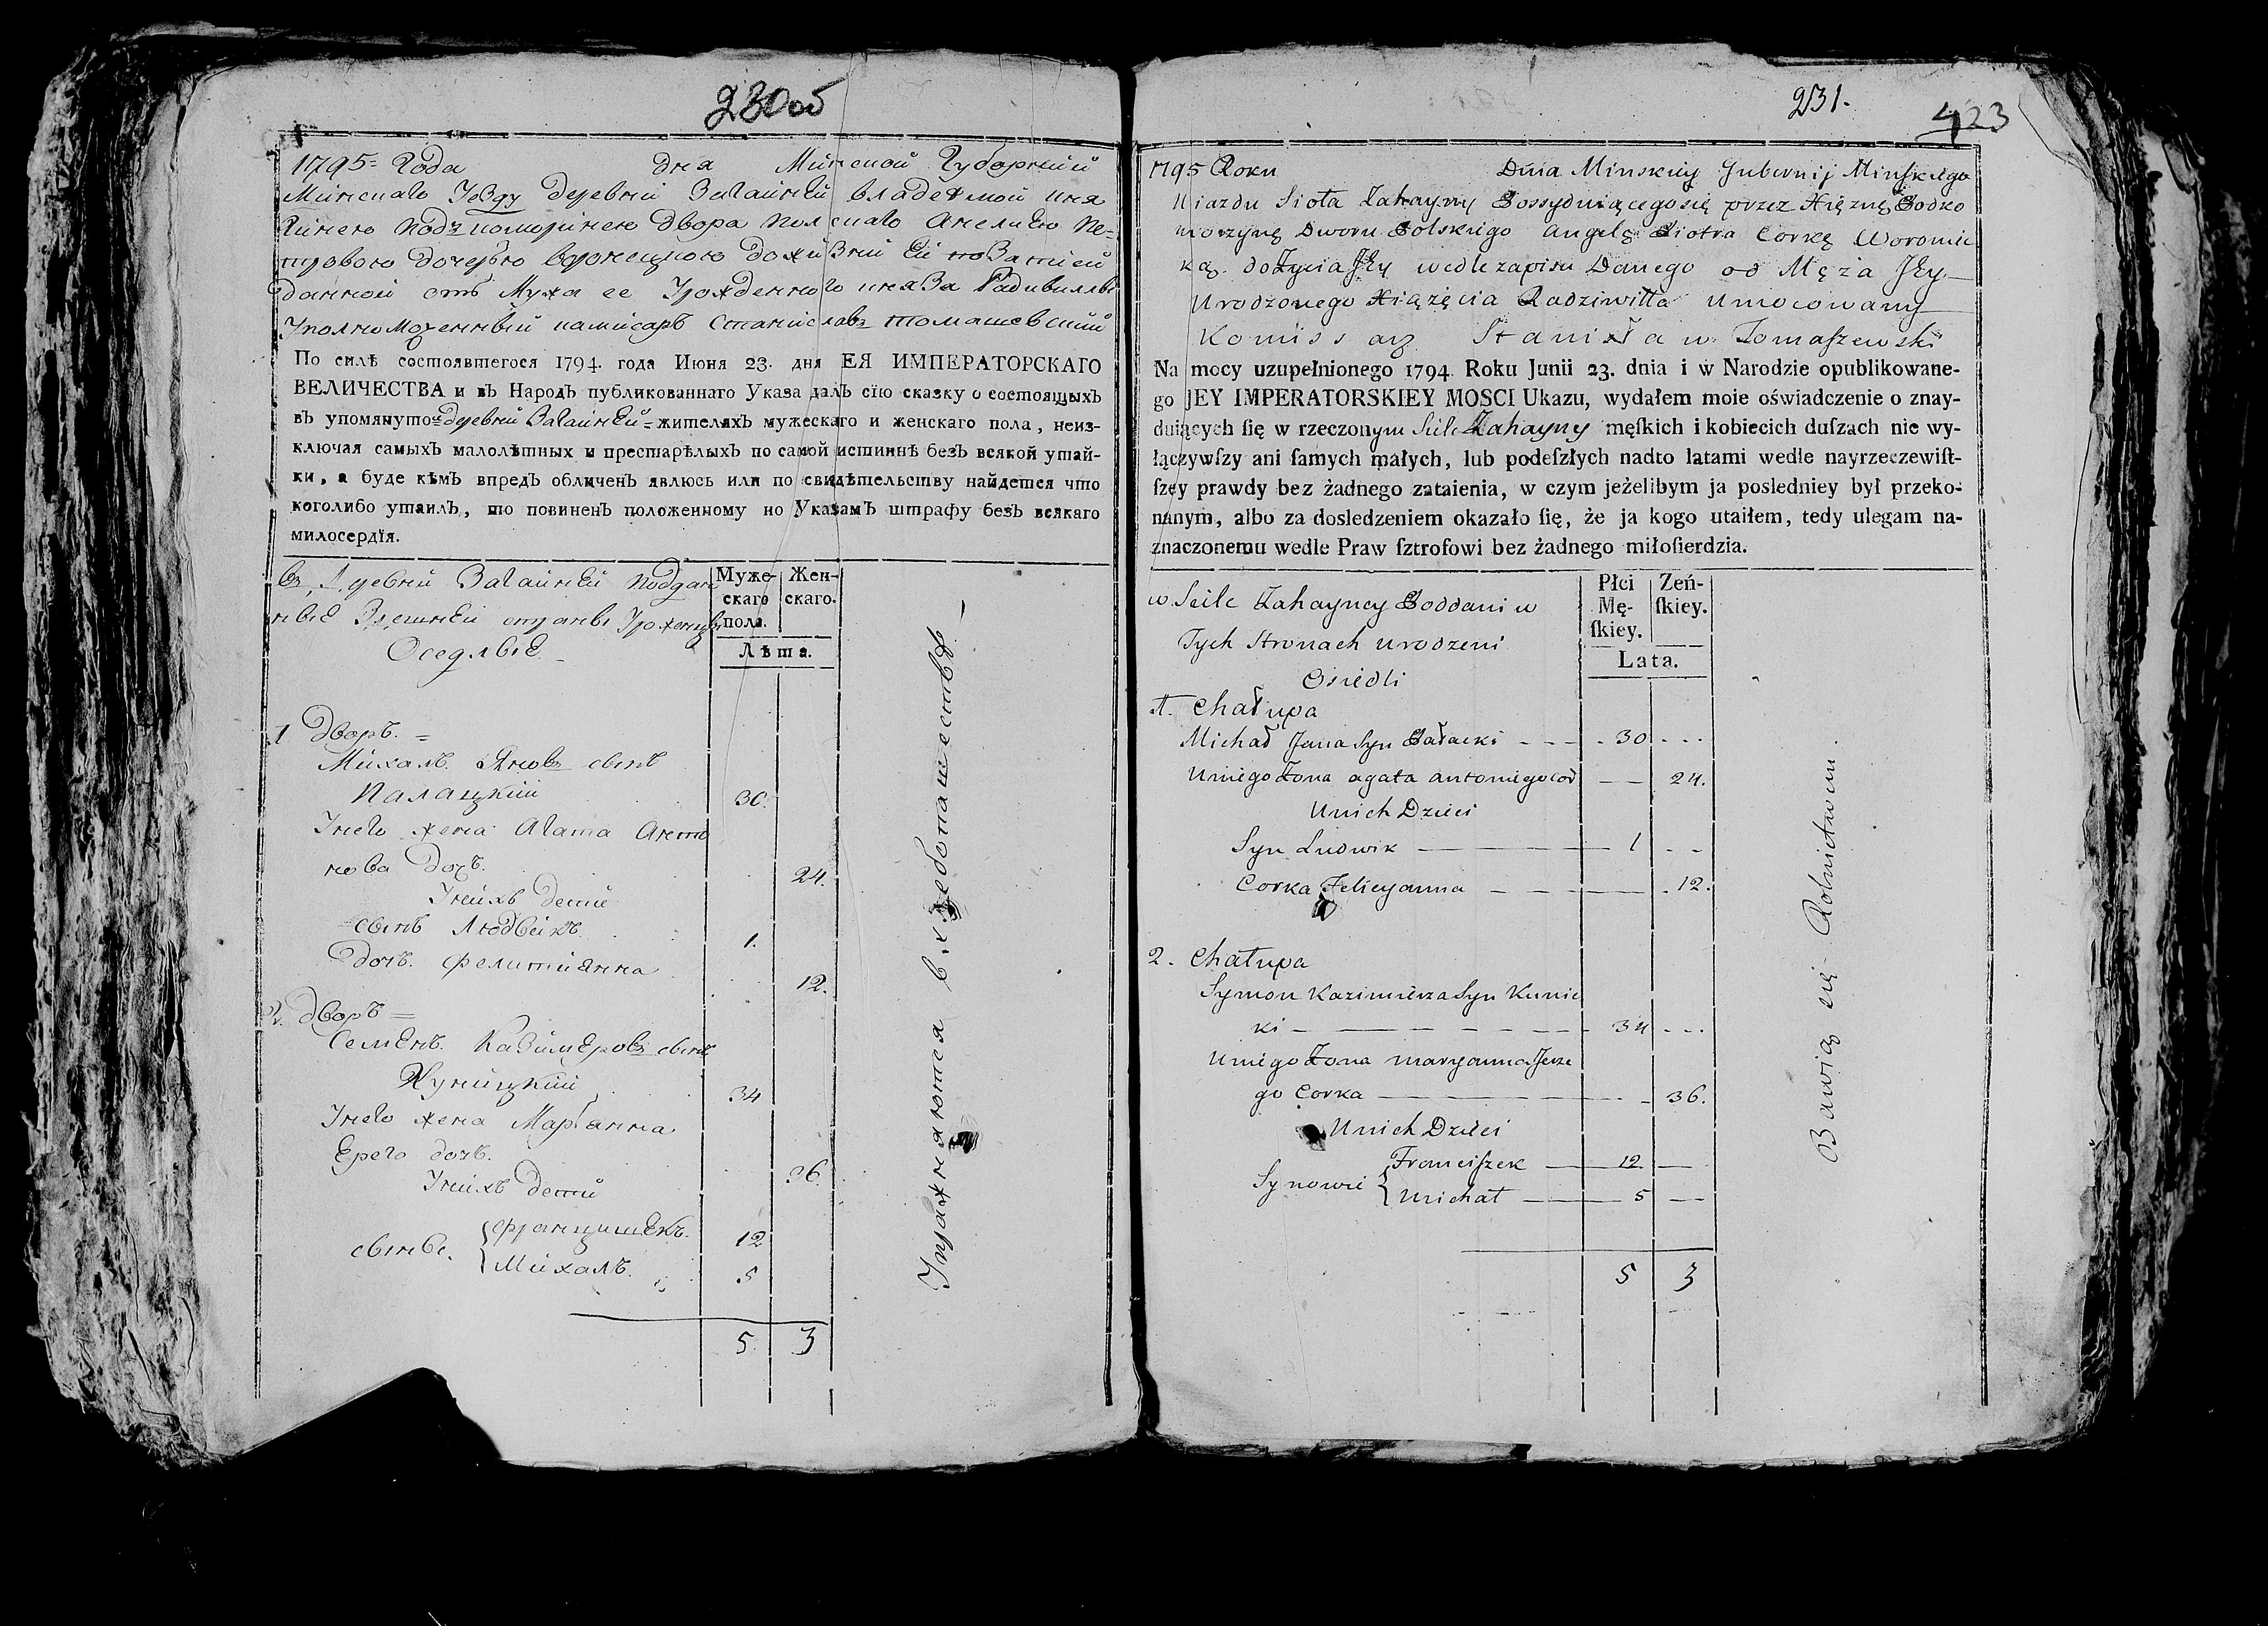 230об
1795= Года дня Минской Губернии
Минскаго Уезду деревни Загайней владеемой кня
гинею подкоморинею двора полскаго Анелиею Пе-
тровою дочерью
данной отъ Мужа ее Урожденного князя Радивиллы
Уполномоченный комисаръ Станиславъ Томашевский
По силѣ состоявшегося 1794. года Июня 23. дня ЕЯ ИМПЕРАТОРСКАГО
ВЕЛИЧЕСТВА и въ Народъ публикованнаго Указа далъ сїю сказку о состоящыхъ
въ упомянутой деревни Загайней = жителяхъ мужескаго и женскаго пола, неиз-
ключая самыхъ малолѣтныхъ и престарѣлыхъ по самой истиннѣ безъ всякой утай-
ки, а буде кѣмъ впредъ обличенъ явлюсь или по свидѣтельству найдется что
коголибо утаилъ, то повиненъ положенному по Указамъ штрафу безъ всякаго
милосердїя.
въ Деревни Загайней Поддан
ные Здешней страны Уроженцы
Оседлые
Муже-
скаго
пола.
Жен-
скаго.
Лѣта.
1 Дворъ. =
Михалъ Яновъ сынъ
Палацкий 30.
Унего жена Агата Анто
нова Дочъ. 24.
Унихъ дети
сынъ Людвикъ 1.
Дочъ. Фелициянна 12.
2. Дворъ =
Семенъ. Казимеровъ сынъ
Куницкий 34
Унего жена Марьянна
Ерего дочъ. 36
Унихъ дети
сыны. { Францишекъ. 12
{ Михалъ. 5
5. 3
Упражняются в хлебопашестве. —
231.
423
1795 Roku Dnia Minskiey Gubernij Minskiego
Uiazdu Sioła Zahayny Possyduiącego się przez Xiężnę Podko
morzynę Dworu Polskiego Angelę Piotra Corkę Woronic
ką. do Życia Jey wedle zapisu Danego od Męża Jey
Urodzonego Xiążęcia Radziwiłła Umocowany
Komissarz Stanisław Tomaszewski
Na mocy uzupełnionego 1794. Roku Junii 23. dnia i w Narodzie opublikowane-
go JEY IMPERATORSKIEY MOSCI Ukazu, wydałem moie oświadczenie o znay-
duiących ſię w rzeczonym Siele Zahayny męſkich i kobiecich duſzach nie wy-
łączywſzy ani ſamych małych, lub podeſzłych nadto latami wedle nayrzeczewiſt-
ſzey prawdy bez żadnego zataienia, w czym jeżelibym ja posledniey był przeko-
nanym, albo za dosledzeniem okazało ſię, że ja kogo utaiłem, tedy ulegam na-
znaczonemu wedle Praw ſztrofowi bez żadnego miłoſierdzia.
w Siele Zahayney Poddani w
Tych Stronach urodzeni
Osiedli
Płci
Mę-
ſkiey.
Zeń-
ſkiey.
Lata.
1. Chałupa
Michał Jana Syn Pałacki - - - 30 - - -
U niego Żona Agata Antoniego cor — — 24.
U nich Dzieci
Syn Ludwik — 1 - -
Corka Felicyanna — — 12.
2. Chałupa
Symon Kazimierza Syn Kunic
ki — 34 - - -
U niego Żona Maryanna Jerze
go Corka — 36.
U nich Dzieci
Synowie { Franciszek — 12 —
{ Michał — 5 —
5 3
Bawią się Rolnictwem.